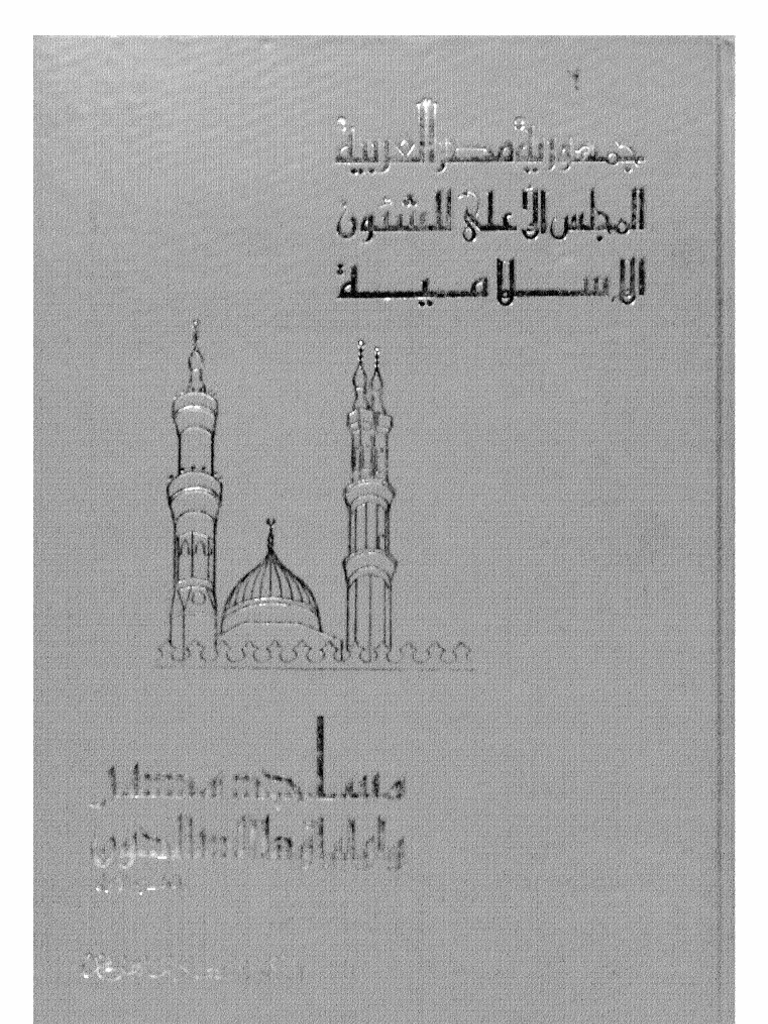 جمهورية مصر العربية
المجلس الأعلى للشئون
الإسلامية
مساجد مصر
وأولياؤها الصالحون